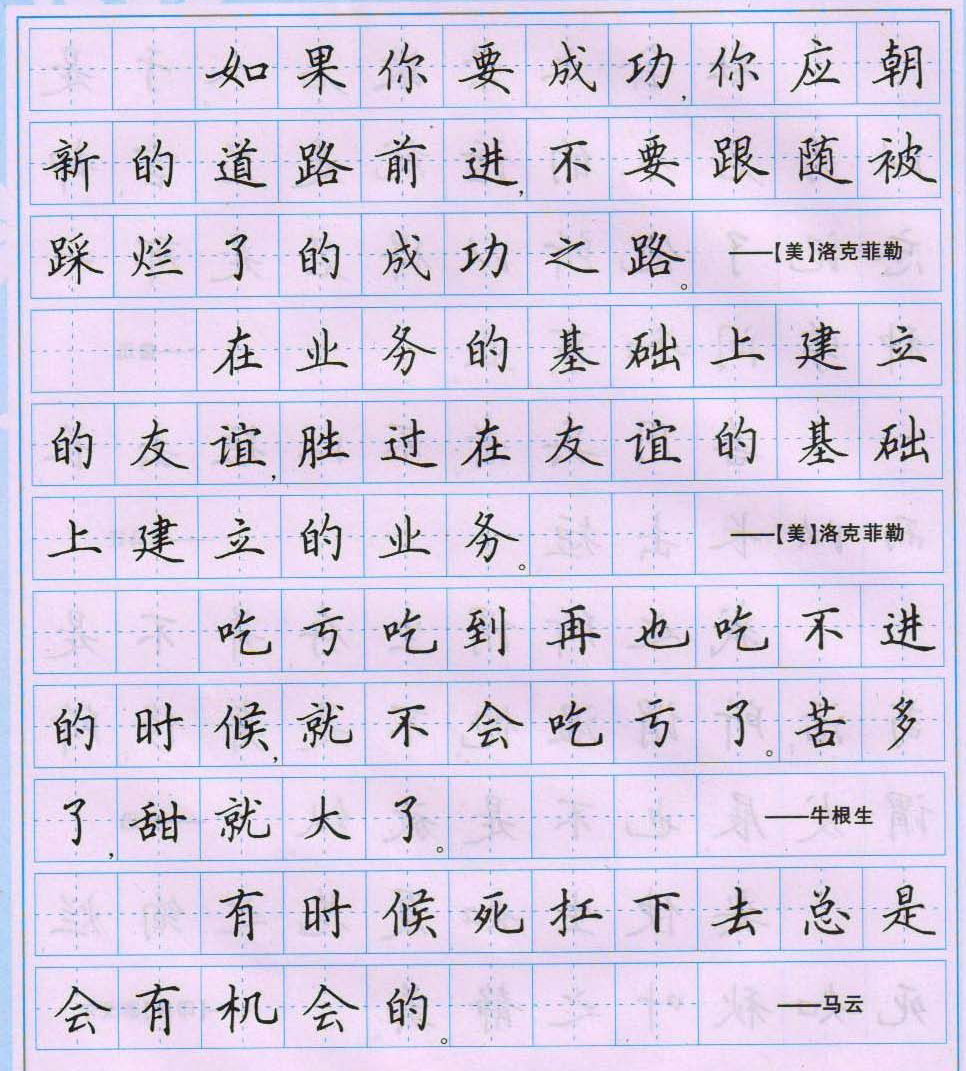 如果你要成功,你应朝
新的道路前进,不要跟随被
踩烂了的成功之路。——【美】洛克菲勒
在业务的基础上建立
的友谊,胜过在友谊的基础
上建立的业务。——【美】洛克菲勒
吃亏吃到再也吃不进
的时候,就不会吃亏了。苦多
了,甜就大了。——牛根生
有时候死扛下去总是
会有机会的。——马云